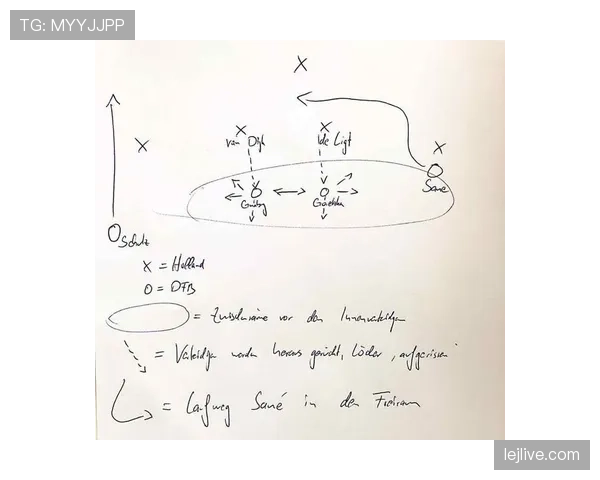 TG: MYYJJPP
X
X
X
X
X
van Dijk
de Ligt
Sané
Goretzka
Schulz
X = Holland
O = DFB
= Zwischenräume vor den Innenverteidigern
= Verteidiger werden heraus gerückt, Löcher "aufgerissen"
= Laufweg Sané in den Freiraum
lejlive.com